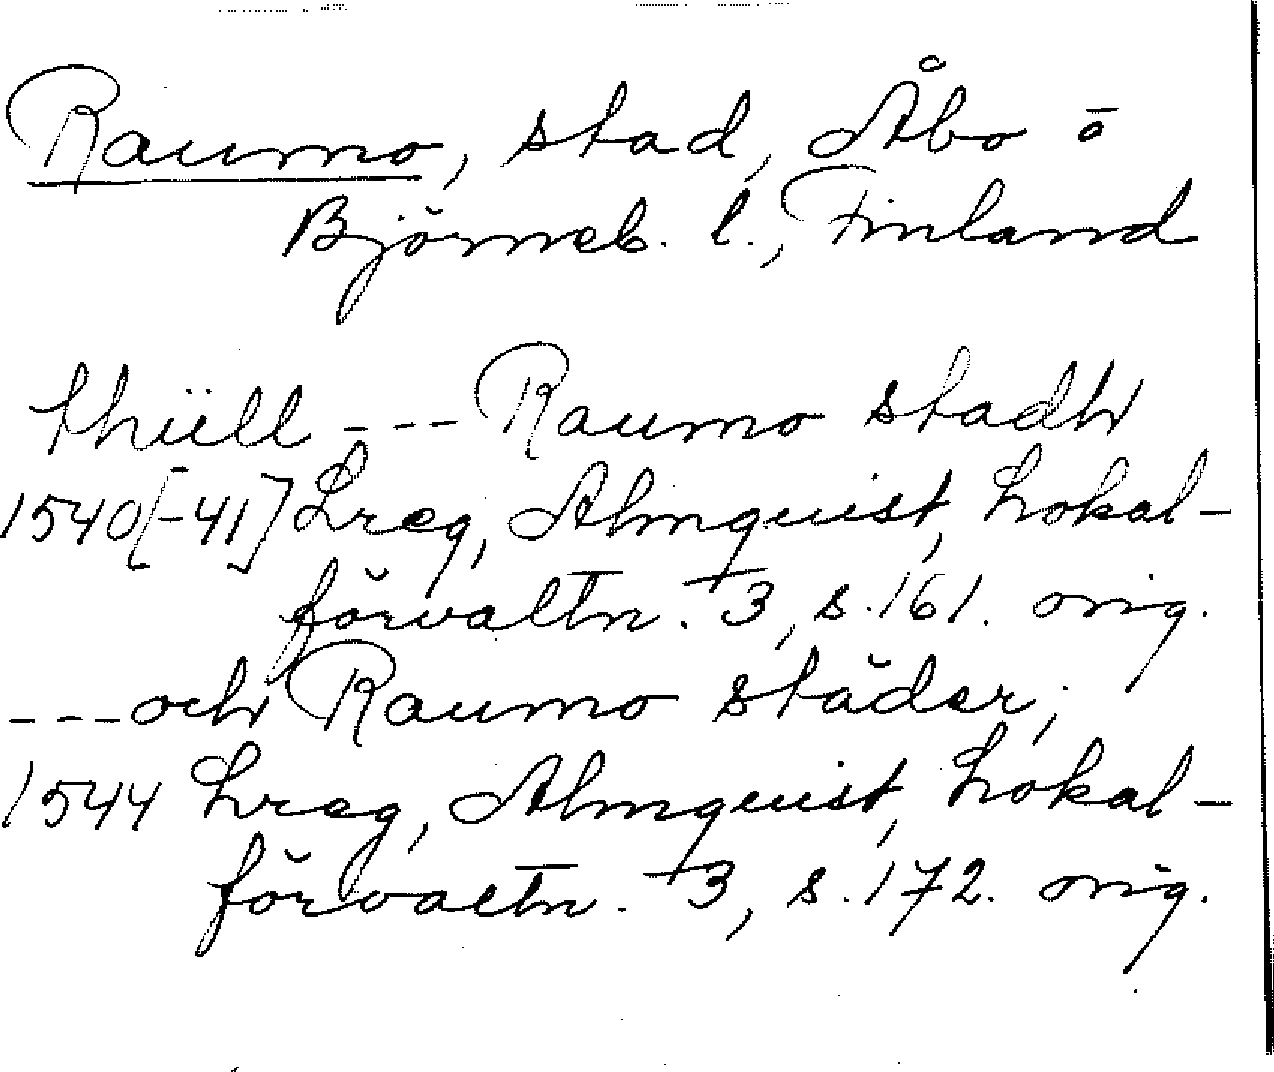 Raumo, stad, Åbo o
Björneb. l., Finland
thüll --- Raumo stadh
1540[-41] Lreg, Almquist, Lokal-
förvaltn. 3, s. 161. orig.
--- och Raumo städer,
1544 Lreg, Almquist, Lokal-
förvaltn. 3, s. 172. orig.